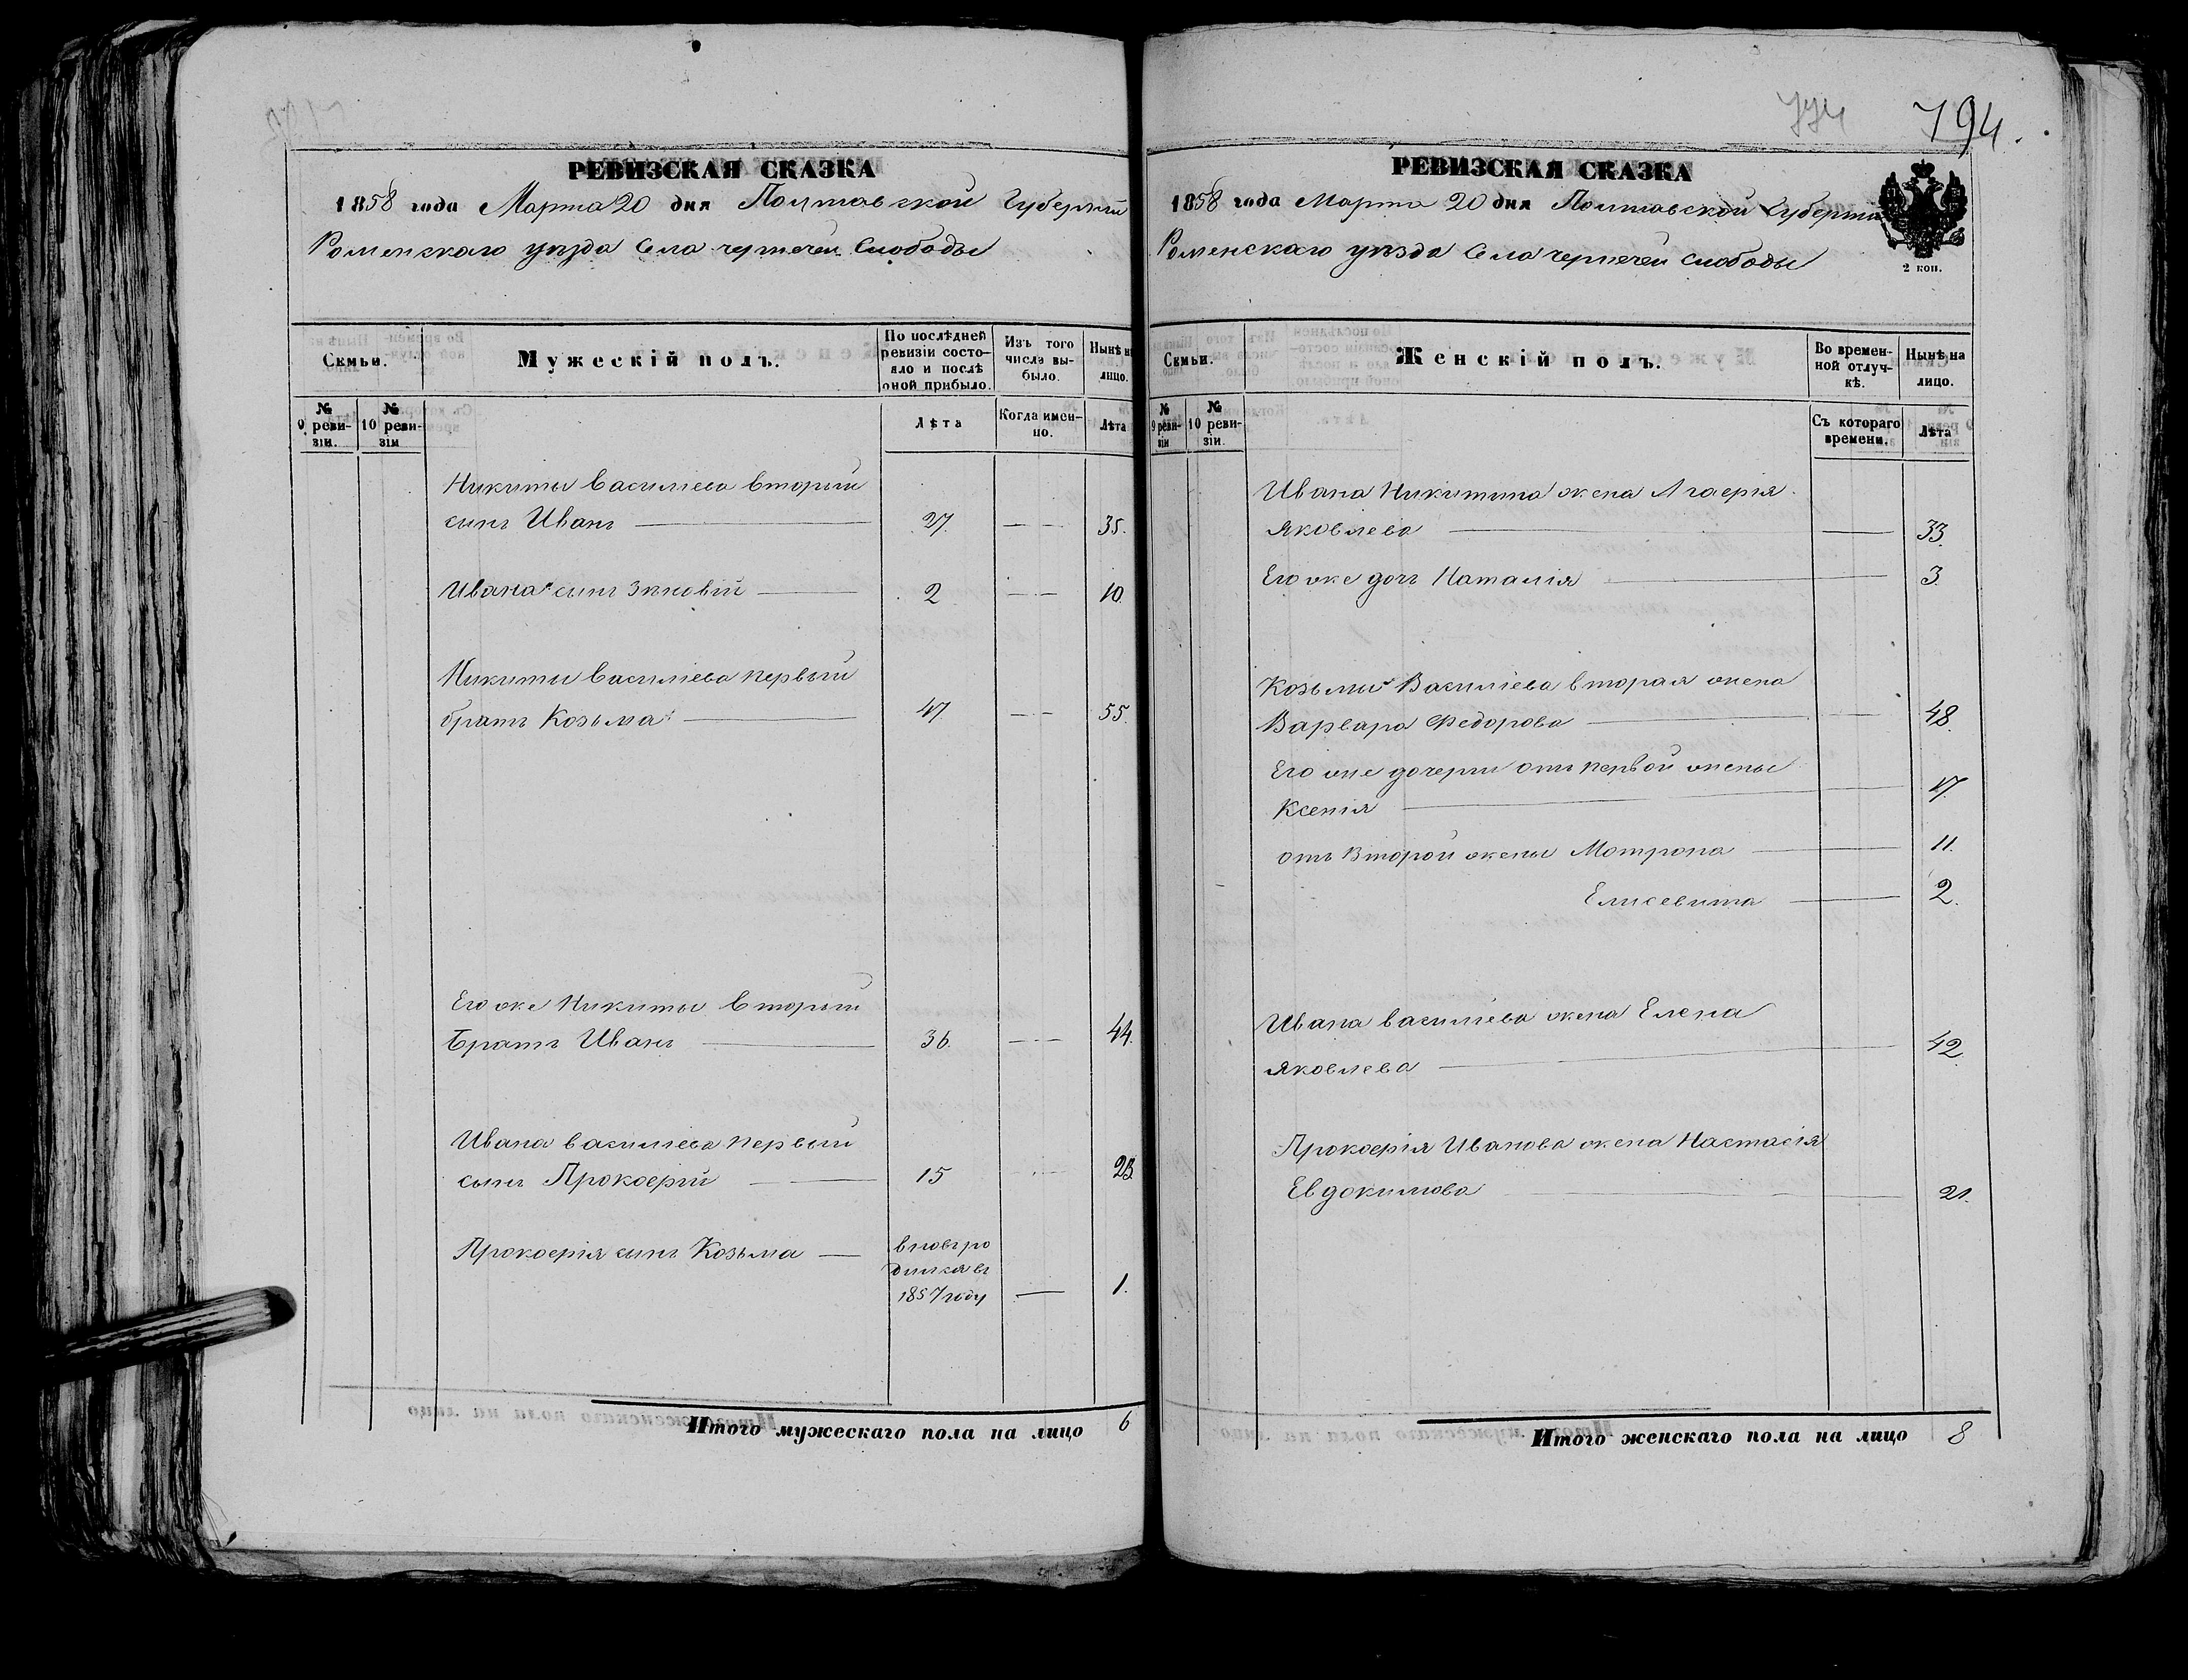 774 794.
РЕВИЗСКАЯ СКАЗКА
1858 года Марта 20 дня Полтавской Губерніи
Роменскаго уѣзда Села чернечей Слободы
Семьи.
Мужескій полъ.
По послѣдней ревизіи состо-
яло и послѣ оной прибыло.
Изъ того числа вы-
было.
Нынѣ на лицо.
№ 9 реви-
зіи.
№ 10 реви-
зіи
Лѣта
Когда имен-
но.
Лѣта
Никиты Василіева вторый
сынъ Иванъ 27. 35.
Ивана сынъ Зѣновій 2 10.
Никиты Василіева первый
братъ Козьма 47. 55.
Его же Никиты вторый
братъ Иванъ 36. 44.
Ивана василіева первый
сынъ Прокофій 15 23
Прокофія сынъ Козьма вновь ро
дился въ
1857 году 1.
Итого мужескаго пола на лицо 6
РЕВИЗСКАЯ СКАЗКА
1858 года Марта 20 дня Полтавской Губерніи
Роменскаго уѣзда Села чернечей слободы
2 коп.
Семьи.
Женскій полъ.
Во времен-
ной отлуч-
кѣ.
Нынѣ на
лицо.
№ 9 реви-
зіи
№ 10 реви-
зіи.
Съ котораго
времени.
Лѣта
Ивана Никитина жена
Яковлева 33.
Его же дочь Наталія 3.
Козьмы Василіева вторая жена
Варвара Федорова 48.
Его же дочери отъ первой жены
Ксенія 17.
отъ Второй жены Мотрона 11.
Елисевита 2.
Ивана василіева жена Елена
Яковлева 42.
Прокофія Иванова жена Настасія
Евдокимова 21.
Итого женскаго пола на лицо 8